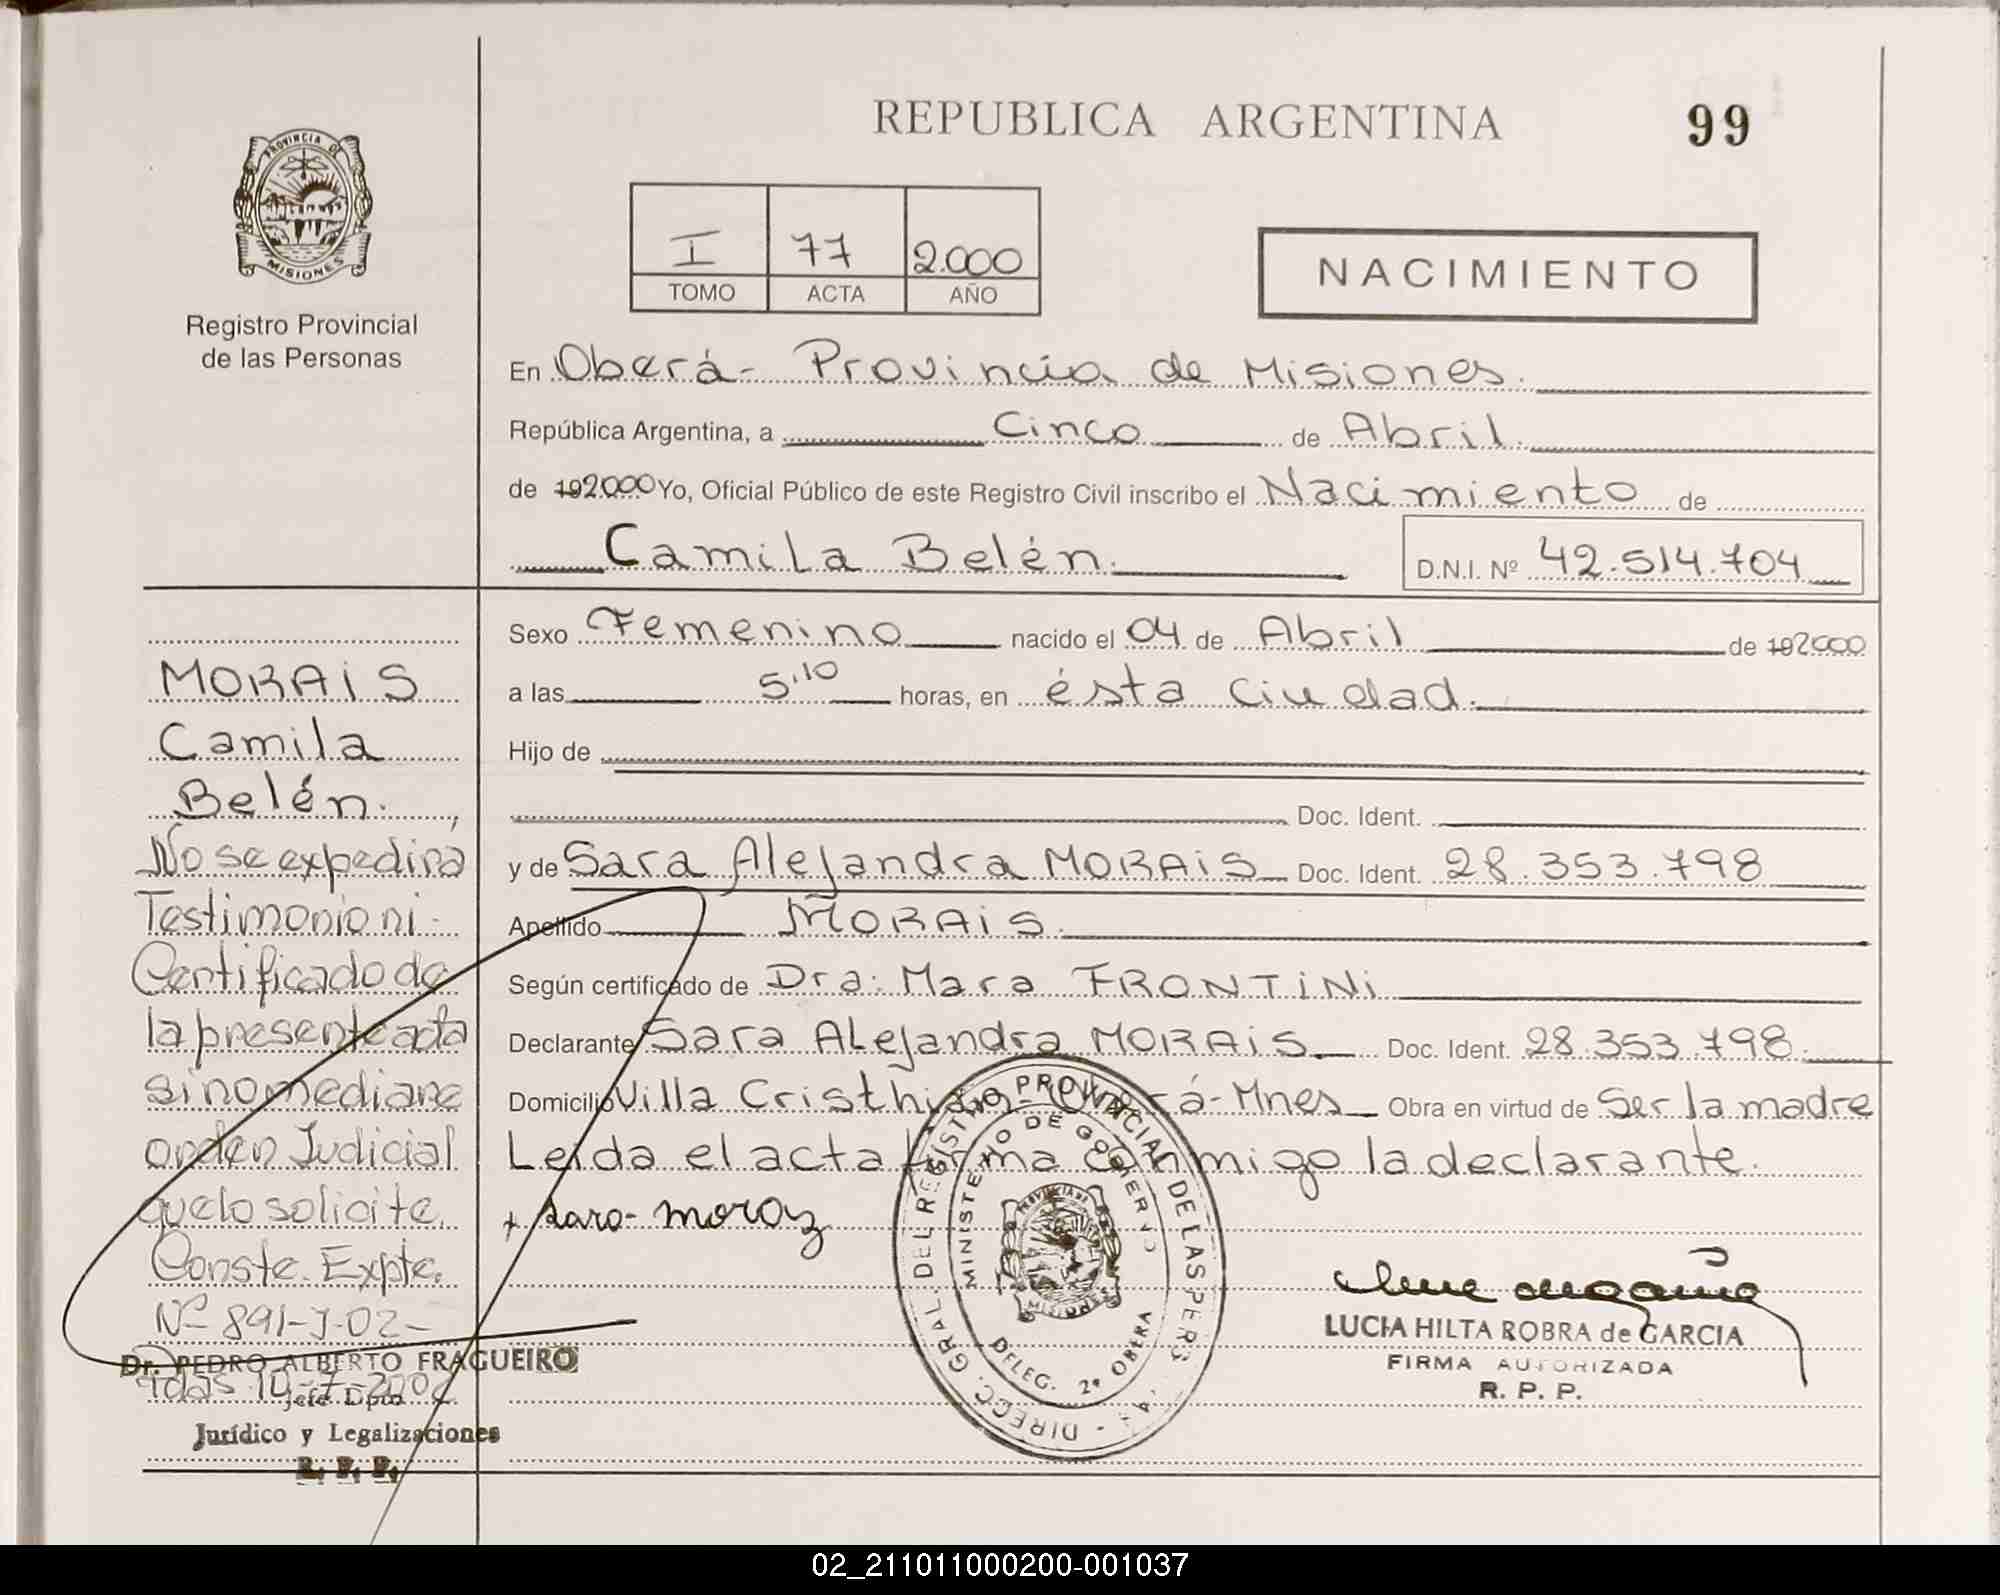 REPUBLICA ARGENTINA
99
PROVINCIA DE
MISIONES
Registro Provincial
de las Personas
I 77 2.000
TOMO ACTA AÑO
NACIMIENTO
En Oberá- Provincia de Misiones.
República Argentina, a Cinco de Abril.
de 192000 Yo, Oficial Público de este Registro Civil inscribo el Nacimiento de
Camila Belén.
D.N.I. Nº 42.514.704
Sexo Femenino nacido el 04 de Abril de 192000
a las 5,10 horas, en ésta Ciudad.
Hijo de
Doc. Ident.
y de Sara Alejandra MORAiS Doc. Ident. 28.353.798
Apellido MORAiS.
Según certificado de Dra: Mara FRONTiNi
Declarante Sara ALejandra MORAiS Doc. Ident. 28.353.798.
Domicilio Villa Cristhian- Oberá-Mnes Obra en virtud de Ser la madre
Leida el acta firma conmigo la declarante.
+ sara- moraz
MORAiS
Camila
Belén.
No se expedirá
Testimonio ni
Certificado de
la presente acta
sino mediane
orden Judicial
que lo solicite.
Conste. Expte.
Nº 891-J-02-
Pdas 10-7-2002
Dr. PEDRO ALBERTO FRAGUEIRO
Jefe Dpto
Jurídico y Legalizaciones
R. P. P.
DIRECC. GRAL. DEL REGISTRO PROVINCIAL DE LAS PERS
MINISTERIO DE GOBIERNO
MISIONES
DELEG. 2ª OBERA
LUCIA HILTA ROBRA de GARCIA
FIRMA AUTORIZADA
R. P. P.
02_211011000200-001037